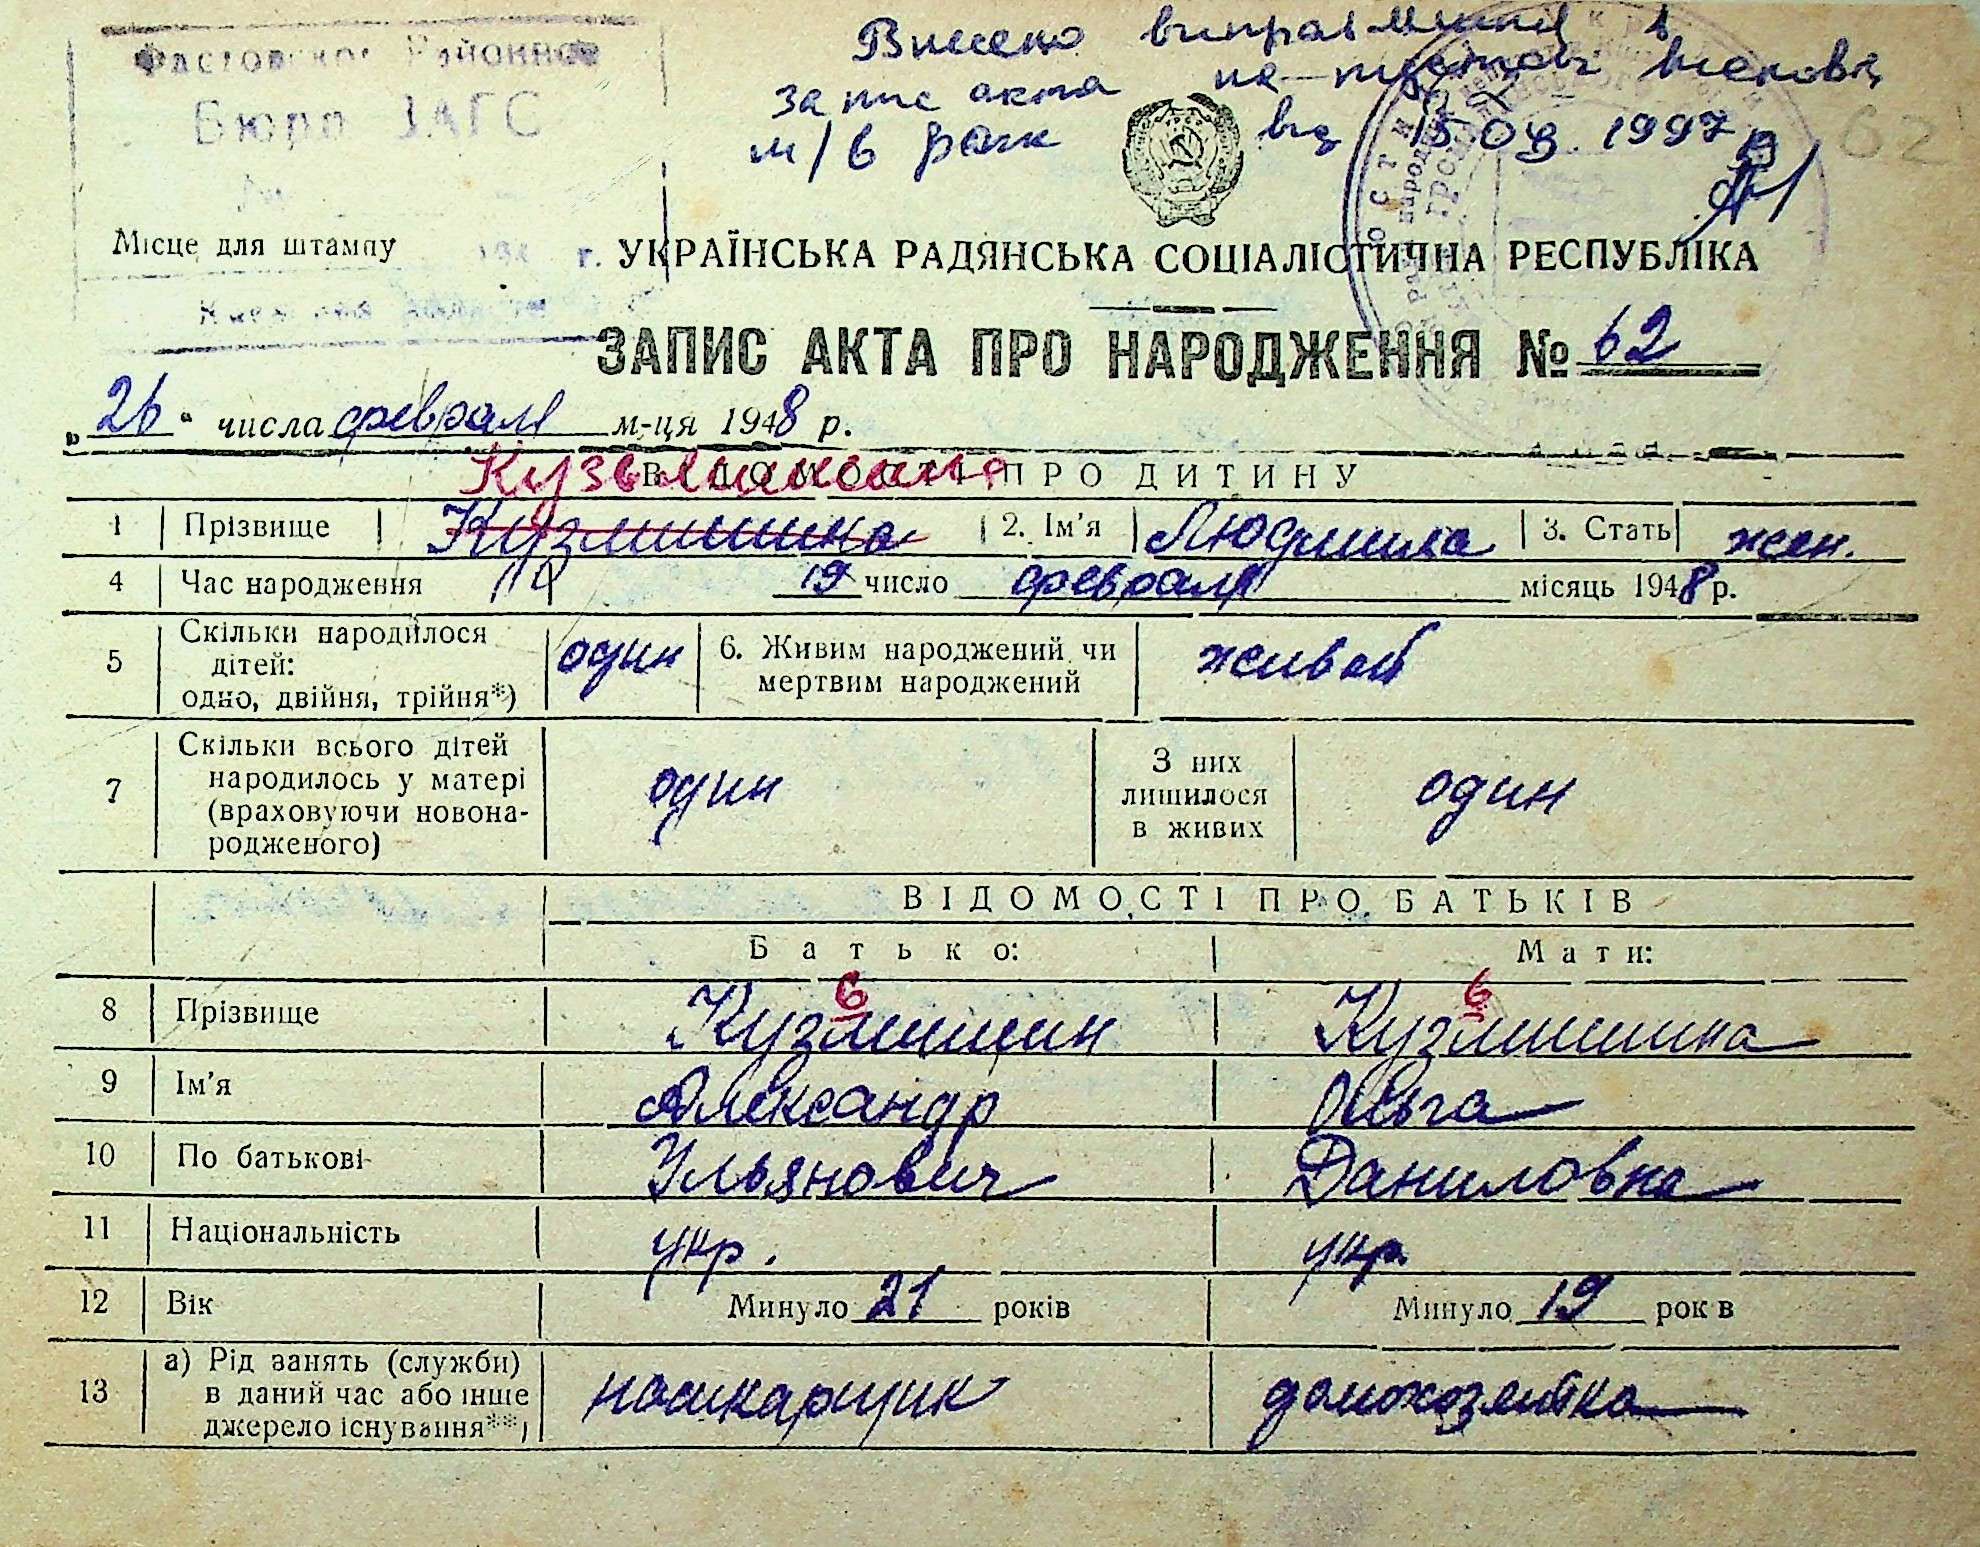 Фастовское Районное
Бюро ЗАГС
Внесено виправлення в
запис акта на підставі висновка
м/в рагк від 15.09.1997 р
62
Місце для штампу
194 г.
УКРАЇНСЬКА РАДЯНСЬКА СОЦІАЛІСТИЧНА РЕСПУБЛІКА
ЗАПИС АКТА ПРО НАРОДЖЕННЯ № 62
„26“ числа февраля м-ця 1948 р.
ВІДОМОСТІ ПРО ДИТИНУ
1 Прізвище Кузмишина 2. Ім'я Людмила 3. Стать жен.
4 Час народження 19 число февраля місяць 1948 р.
5 Скільки народилося дітей: одно, двійня, трійня*) один 6. Живим народжений чи мертвим народжений живой
7 Скільки всього дітей народилось у матері (враховуючи новонародженого) один З них лишилося в живих один
ВІДОМОСТІ ПРО БАТЬКІВ
Батько: Мати:
8 Прізвище Кузьмишин Кузьмишина
9 Ім'я Александр Ольга
10 По батькові Ульянович Даниловна
11 Національність укр. укр.
12 Вік Минуло 21 років Минуло 19 рок в
13 а) Рід занять (служби) в даний час або інше джерело існування**) домохозяйка